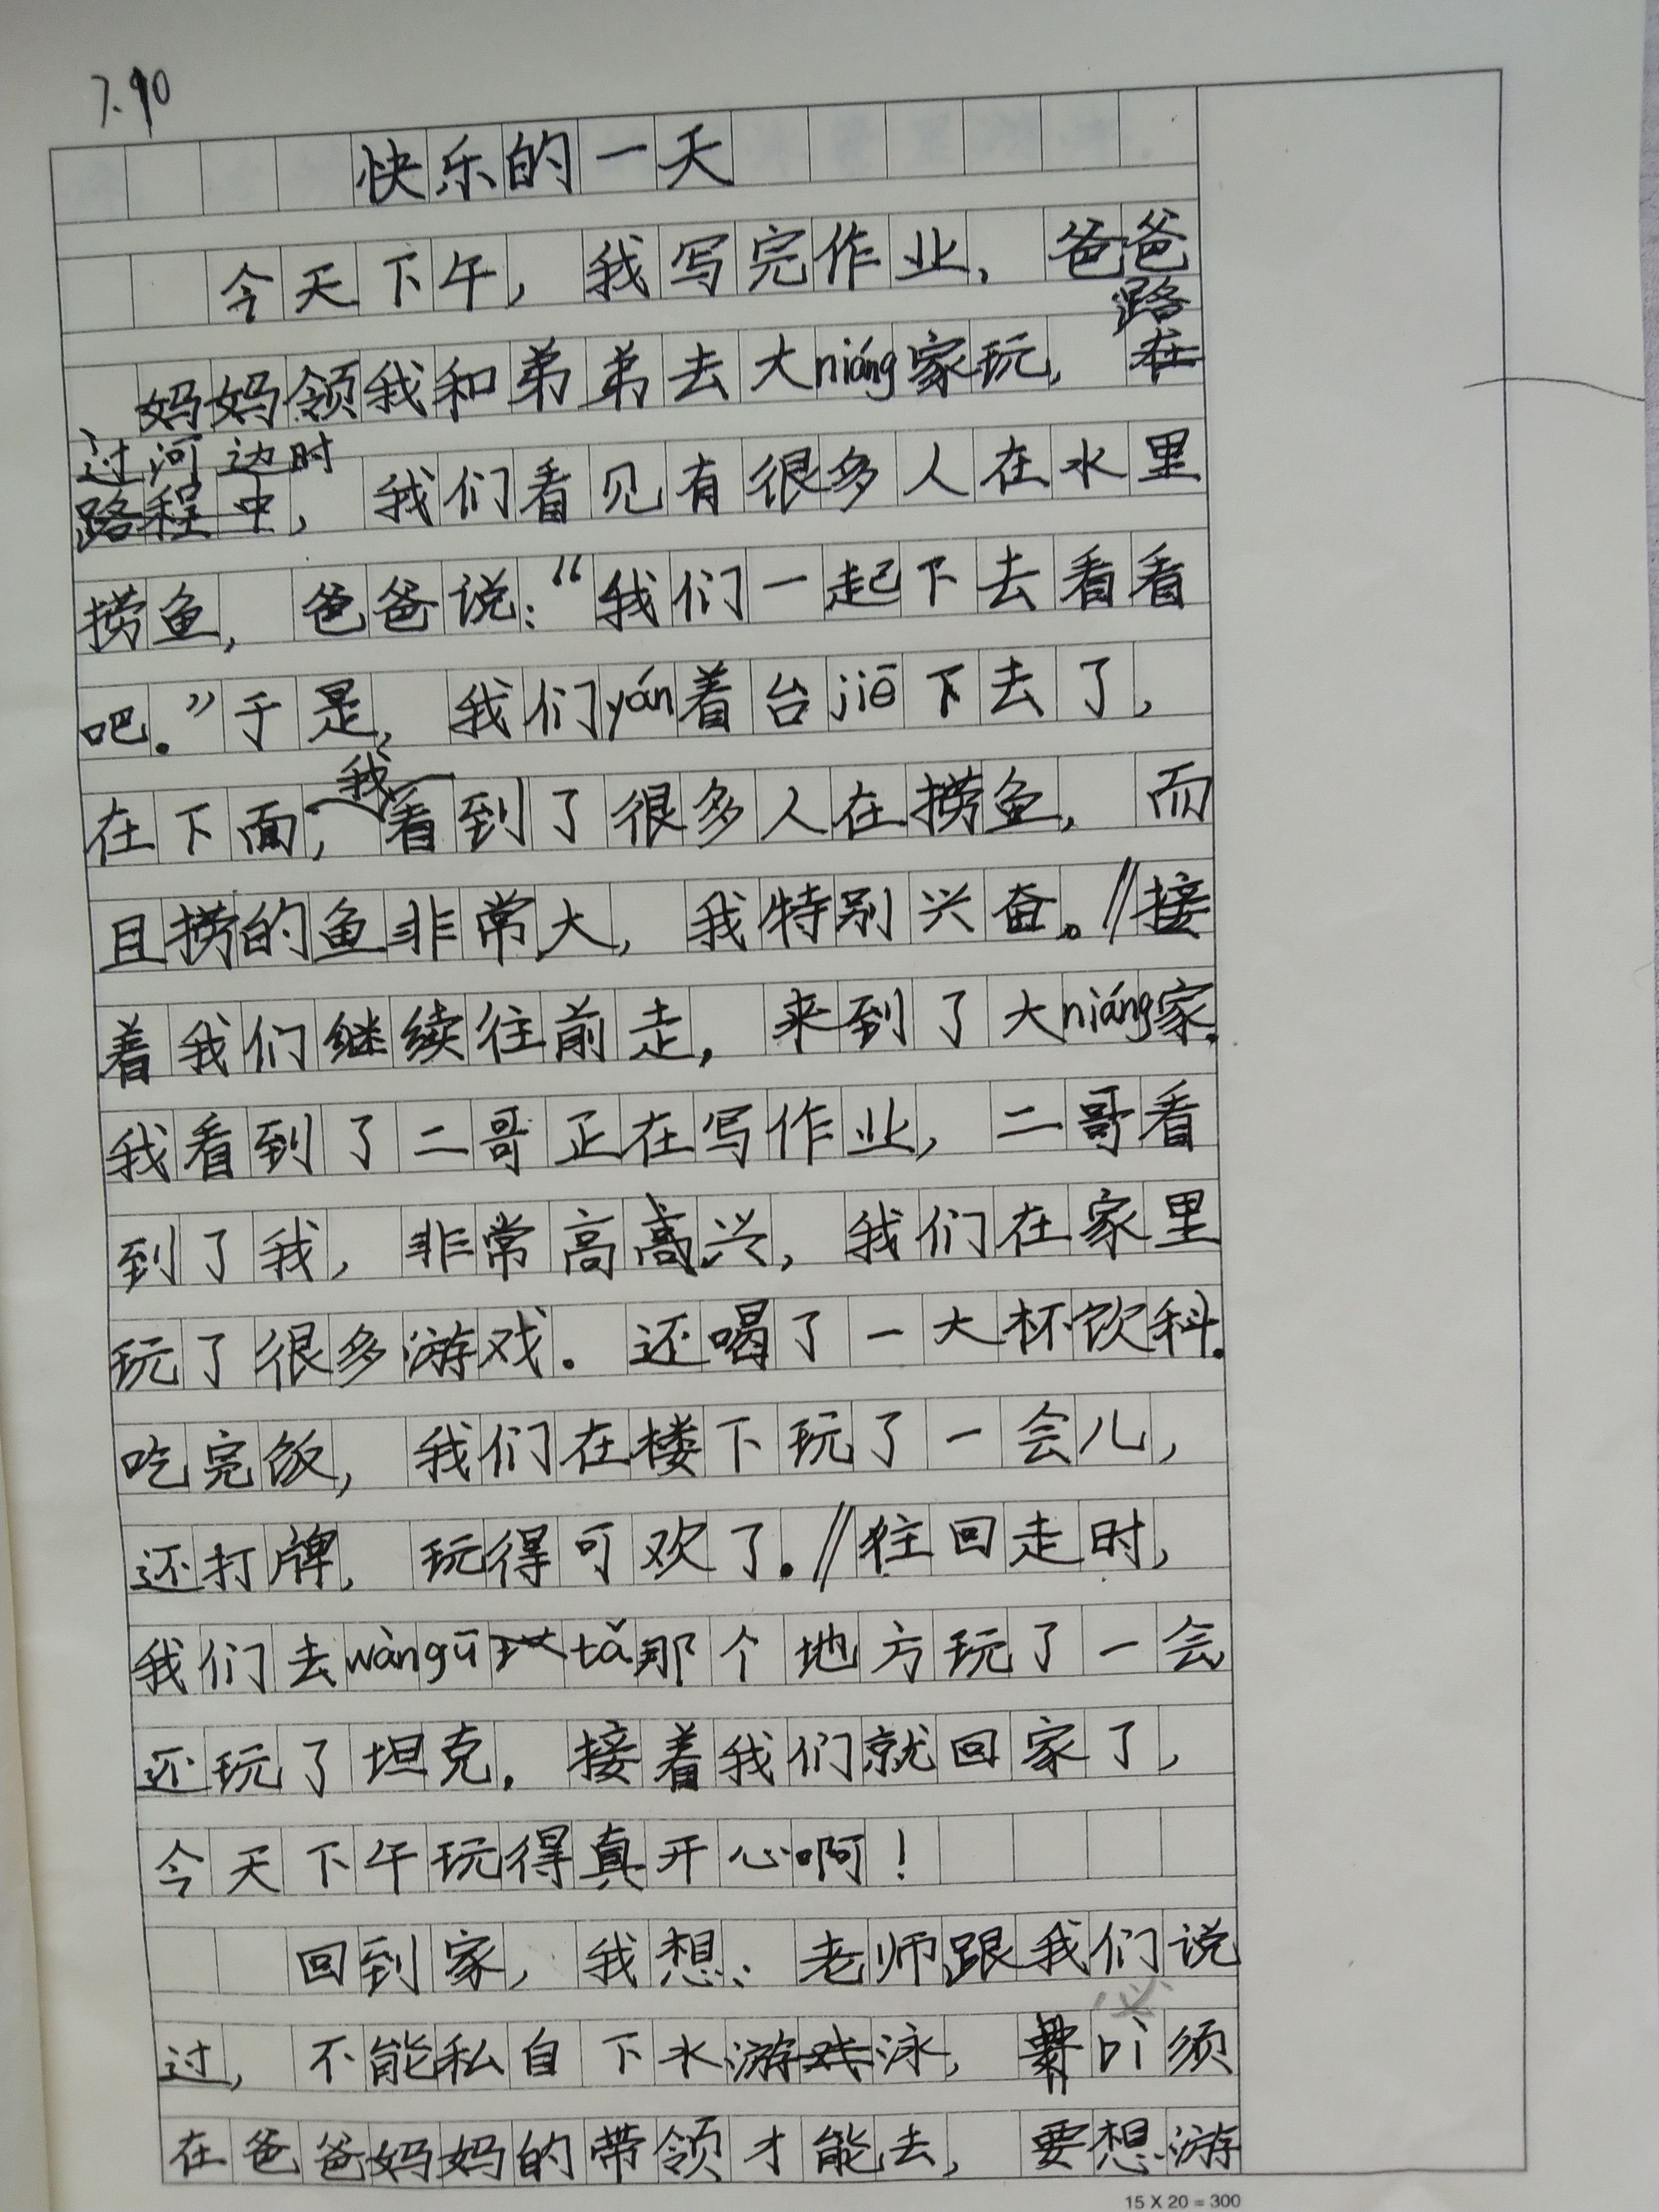 7.10
快乐的一天
今天下午，我写完作业，爸爸
路
妈妈领我和弟弟去大niáng家玩，在
过河边时
路程中，我们看见有很多人在水里
捞鱼，爸爸说：“我们一起下去看看
吧。”于是，我们yán着台jiē下去了，
我
在下面，看到了很多人在捞鱼，而
且捞的鱼非常大，我特别兴奋。//接
着我们继续往前走，来到了大niáng家.
我看到了二哥正在写作业，二哥看
到了我，非常高高兴，我们在家里
玩了很多游戏.还喝了一大杯饮料.
吃完饭，我们在楼下玩了一会儿，
还打牌，玩得可欢了.//往回走时，
我们去wàngū tǎ那个地方玩了一会
还玩了坦克.接着我们就回家了，
今天下午玩得真开心啊！
回到家，我想：老师跟我们说
过，不能私自下水游戏泳，bì须
在爸爸妈妈的带领才能去，要想游
15 X 20 = 300